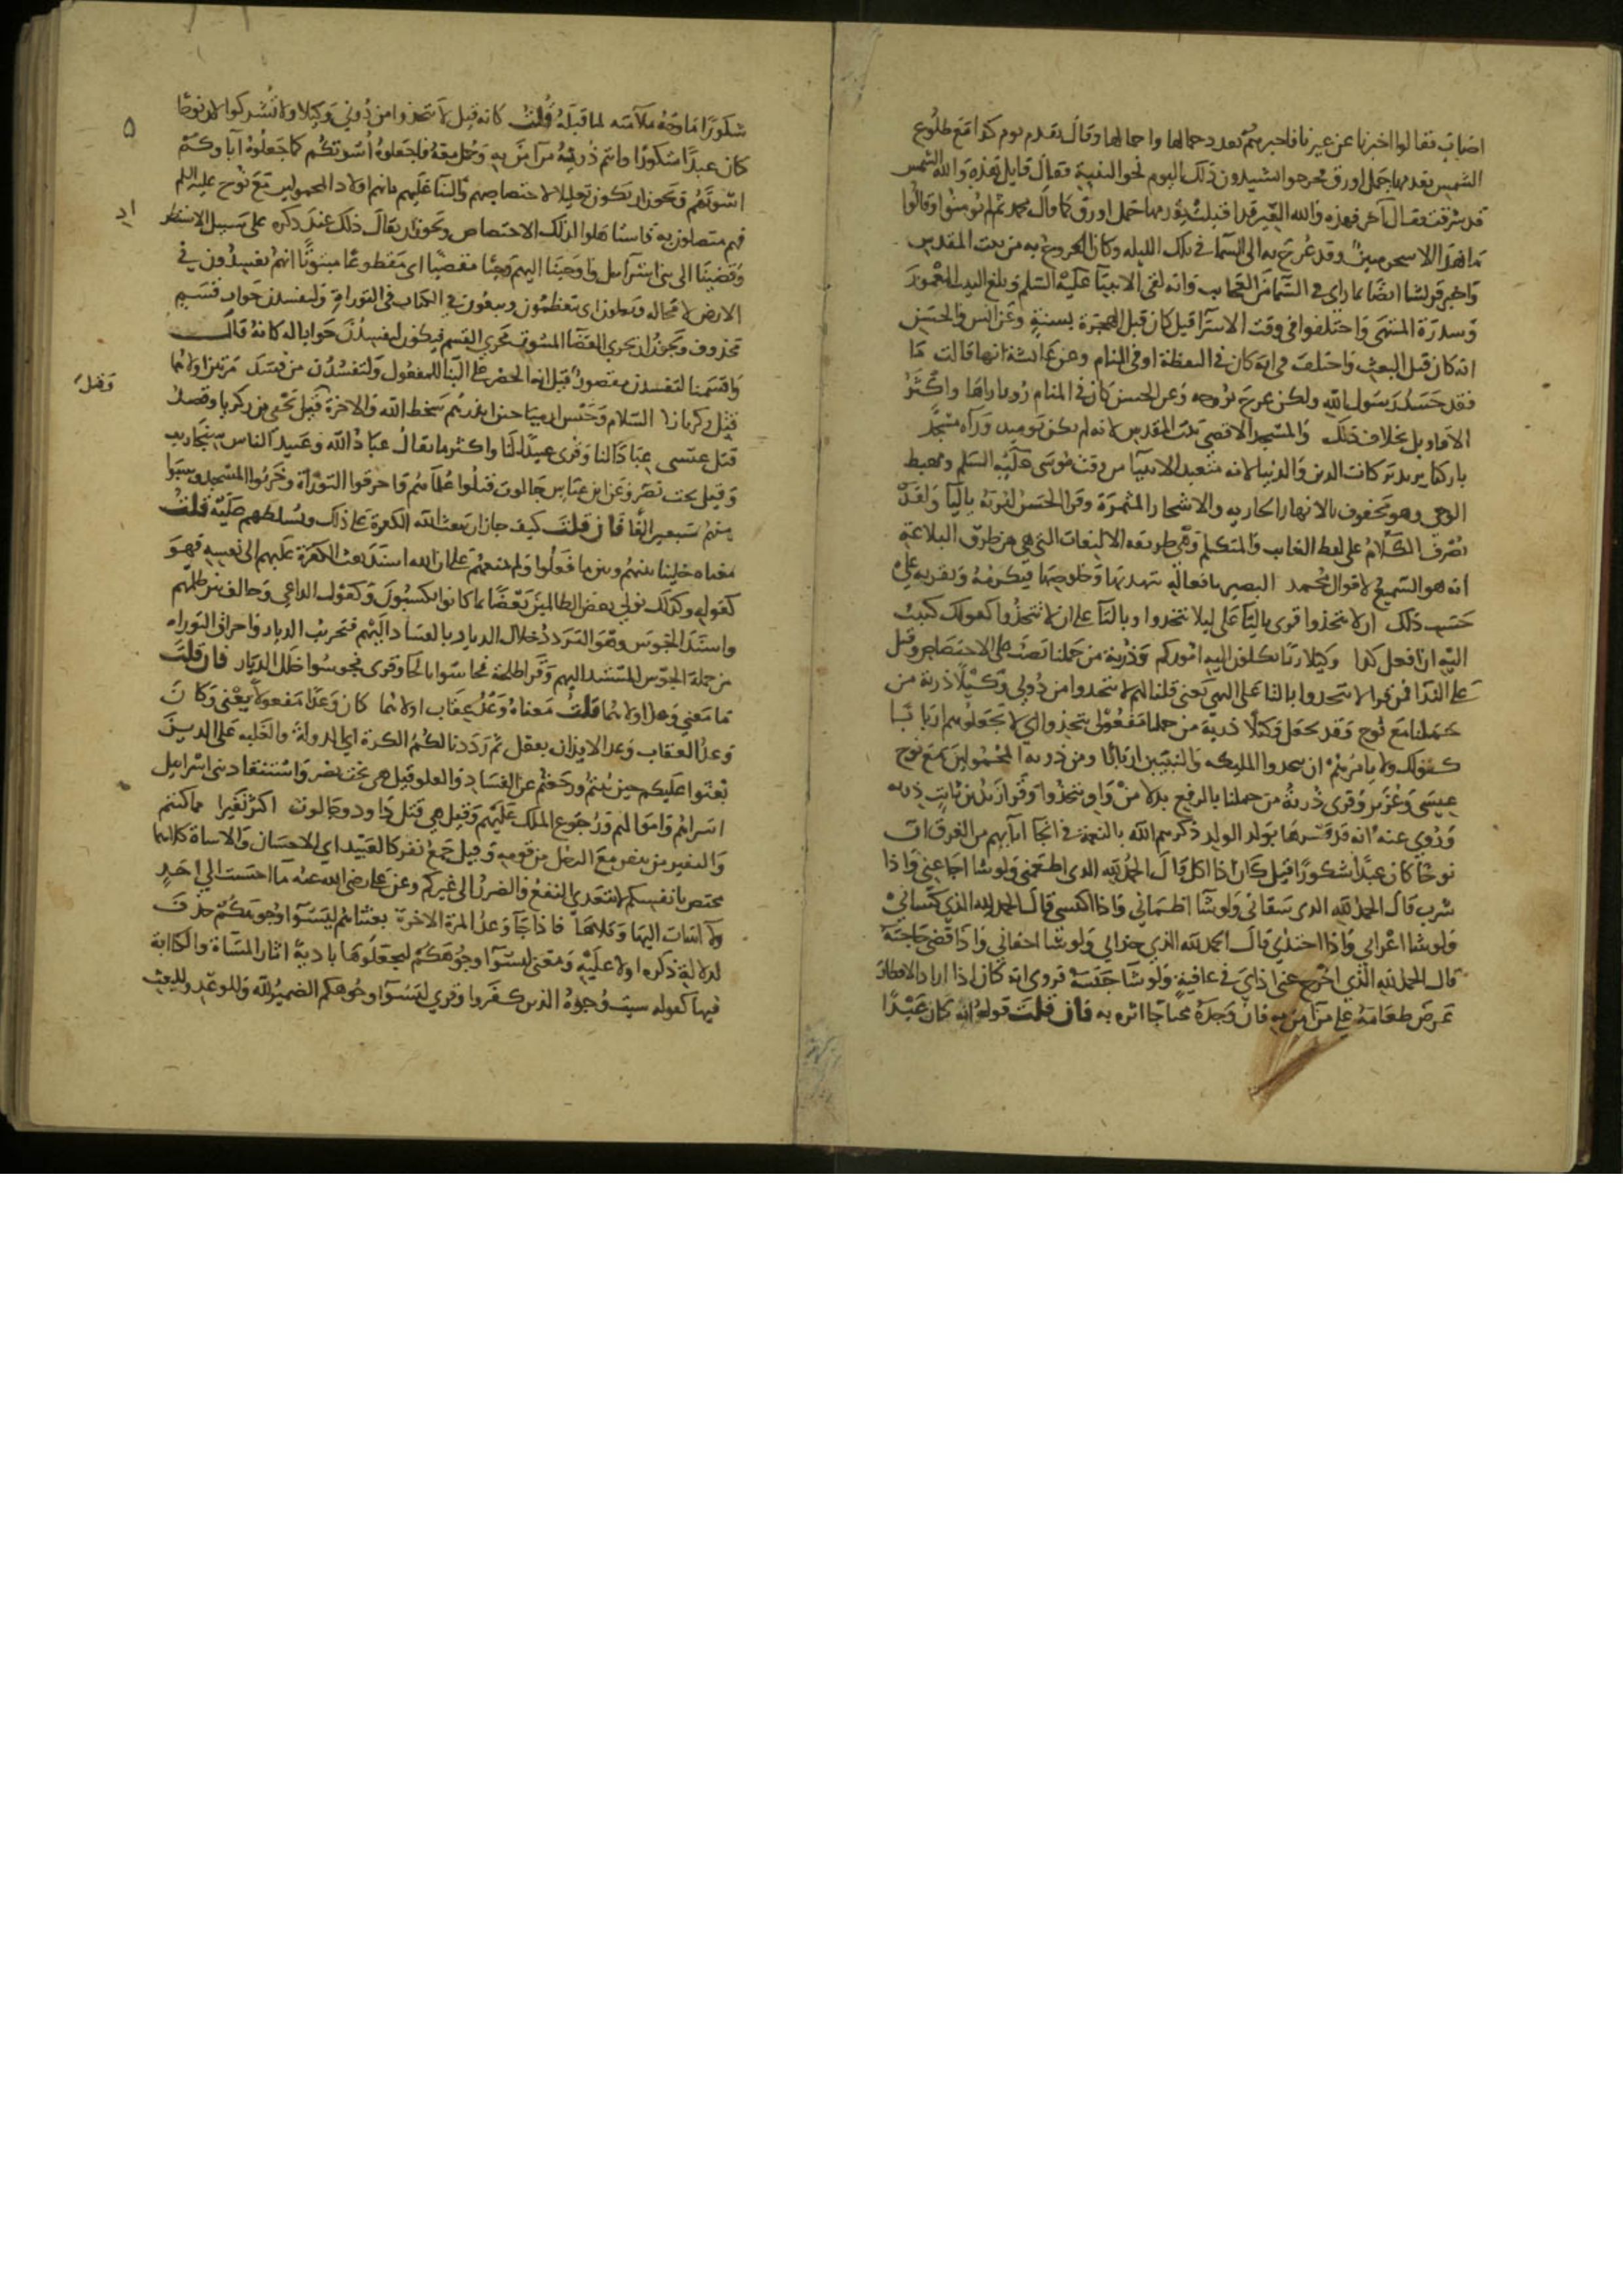 اصاب فقالوا اخبرنا عن عيرنا فاخبرهم بعدد جمالها واحمالها وقال تقدم يوم كذا مع طلوع
الشمس يقدمها جمل اورق فخرجوا يشتدون ذلك اليوم نحو الثنية فقال قايل هذه والله الشمس
قد شرقت فقال آخر فهذه والله العير قد اقبلت يقدمها جمل اورق كما قال محمد ثم لم يومنوا وقالوا
ما هذا الا سحر مبين وقد عرج به الى السما في تلك الليله وكان العروج به من بيت المقدس
واخبر قريشا ايضا بما راى في السما من العجايب وانه لقي الانبيا عليه السلم وبلغ البيت المعمور
وسدرة المنتهى واختلفوا في وقت الاسرا قيل كان قبل الهجرة بسنة وعن انس والحسن
انه كان قبل البعث واختلف في انه كان في اليقظة او في المنام وعن عائشة انها قالت ما
فقد جسد رسول الله ولكن عرج بروحه وعن الحسن كان في المنام رويا راها واكثر
الاقاويل بخلاف ذلك والمسجد الاقصى بيت المقدس لانه لم يكن يوميد وراه مسجد
باركنا يريد بركات الدين والدنيا لانه متعبد الانبيا من وقت موسى عليه السلم ومهبط
الوحي وهو محفوف بالانهار الجاريه والاشجار المثمرة وقرا الحسن ليريه باليا ولقد
تصرف الكلام على لفظ الغايب والمتكلم وهي طريقه الالتفات التي هي من طرق البلاغة
انه هو السميع لاقوال محمد البصير بافعاله بتهذبها وخلوصها فيكرمه ويقربه على
حسب ذلك ان لا تتخذوا قرى باليا على ليلا يتخذوا وبالتا على ان لا تتخذوا كقولك كتبت
اليه ان افعل كذا وكيلا ربا تكلون اليه اموركم وذرية من حملنا نصب على الاختصاص وقيل
على الندا فمن قرا لا تتخذوا بالتا على النهي يعني قلنا لهم لا تتخذوا من دوني وكيلا ذرية من
حملنا مع نوح وقد يجعل وكيلا ذرية من حملنا مفعولي يتخذوا اي لا تجعلوهم اربابا
كقولك ولا يامركم ان تتخذوا المليكه والنبيين اربابا ومن ذرية المحمولين مع نوح
عيسى وعزير وقرى ذرية من حملنا بالرفع بدلا من واو يتخذوا وقرا زيد بن ثابت ذريه
وروي عنه انه قد فسرها بولد الولد ذكرهم الله بالنعمة في انجا ابآيهم من الغرق انّ
نوحا كان عبدا شكورا قيل كان اذا اكل قال الحمد لله الذى اطعمني ولو شا اجاعني واذا
شرب قال الحمد لله الذى سقاني ولو شا اظماني واذا اكتسى قال الحمد لله الذي كساني
ولو شا اعراني واذا احتذى قال الحمد لله الذي حذاني ولو شا احفاني واذا قضى حاجته
قال الحمد لله الذي اخرج عني اذاي في عافية ولو شا حبسه وروى انه كان اذا اراد الافطار
عرض طعامه على من امن به فان وجده محتاجا اثره به فان قلت قوله انه كان عبدا
شكورا ما وجه ملآمته لما قبله قلت كانه قيل لا تتخذوا من دوني وكيلا ولا تشركوا لان نوحا
كان عبدا شكورا وانتم ذرية من آمن به وحمل معه فاجعلوه اسوتكم كما جعلوه آباوكم
اسوتهم ويجوز ان يكون تعليلا لاختصاصهم والثنا عليهم بانهم اولاد المحمولين مع نوح عليه السلم
فهم متصلون به فاستاهلوا لذلك الاختصاص ويجوز ان يقال ذلك عند ذكره على سبيل الاستطر
اد
وقضينا الى بنى اسرآيل واوحينا اليهم وحيا مقضيا اى مقطوعا مبتوتا انهم يفسدون في
الارض لا محاله ويعلون اى يتعظمون ويبغون في الكتاب في التوراة ولتفسدن جواب قسم
محذوف ويجوز ان يجري القضآ المبتوت مجرى القسم فيكون لتفسدن جوابا له كانه قال
واقسمنا لتفسدن وقرى لتفسدن على البنا للمفعول ولتفسدن من فسد مرتين اولاهما
قتل زكريا عليه السلام وحبس ارميا حين انذرهم سخط الله والاخرة قتل يحيى بن زكريا وقصد
وقتل
قتل عيسى عبادا لنا وقرى عبيدا لنا واكثر ما يقال عباد الله وعبيد الناس سنجاريب
وقيل بخت نصر وعن ابن عباس جالوت قتلوا علمآهم واحرقوا التوراة وخربوا المسجد وسبوا
منهم سبعين الفا فان قلت كيف جاز ان يبعث الله الكفرة على ذلك ويسلطهم عليه قلت
معناه خلينا بينهم وبين ما فعلوا ولم نمنعهم على ان الله اسند بعث الكفرة عليهم الى نفسه فهو
كقوله وكذلك نولي بعض الظالمين بعضا بما كانوا يكسبون وكقول الداعي وخالف بين كلمهم
واسند الجوس وهو التردد خلال الديار بالفساد اليهم فتخريب الديار واحراق التوراه
من جملة الجوس المسند اليهم وقرا طلحة فحاسوا بالحا وقرى فجوسوا خلل الديار فان قلت
ما معني وعد اولاهما قلت معناه وعد عقاب اولاهما كان وعدا مفعولا يعنى وكان
وعد العقاب وعدا لا بد ان يفعل ثم رددنا لكم الكرة اي الدولة والغلبه على الدين
بعثوا عليكم حين تبتم ورجعتم عن الفساد والعلو قيل هي بخت نصر واستنقاد بنى اسرائيل
اسراهم واموالهم ورجوع الملك عليهم وقيل هي قتل داود جالوت اكثر نفيرا مما كنتم
والنفير من ينفر مع الرجل من قومه وقيل جمع نفر كالعبيد اي الاحسان والاساة كلاهما
مختص بانفسكم لا يتعدي النفع والضرر الى غيركم وعن علي رضى الله عنه ما احسنت الي احد
ولا اسات اليها وتلاها فاذا جآ وعد المرة الاخرة بعثناهم ليسوآ وجوهكم حذف
لدلالة ذكره اولا عليه ومعنى ليسوآ وجوهكم ليجعلوها بادية اثار المسآة والكآبة
فيها كقوله سيت وجوه الذين كفروا وقري ليسوآ وجوهكم الضمير لله وللوعد وللبعث